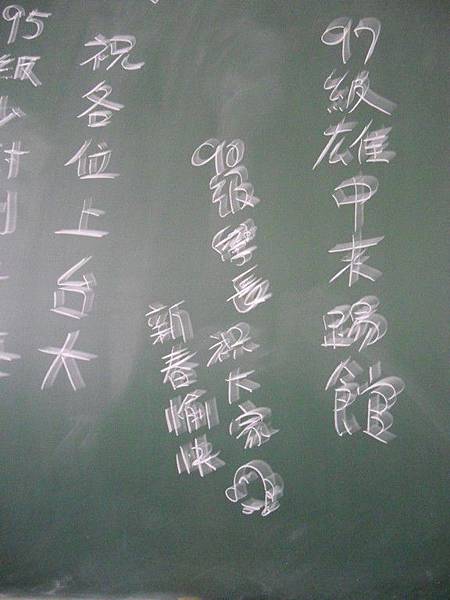 97級雄中来踢館
90級學長祝大家
新春愉快
祝各位上台大
95級